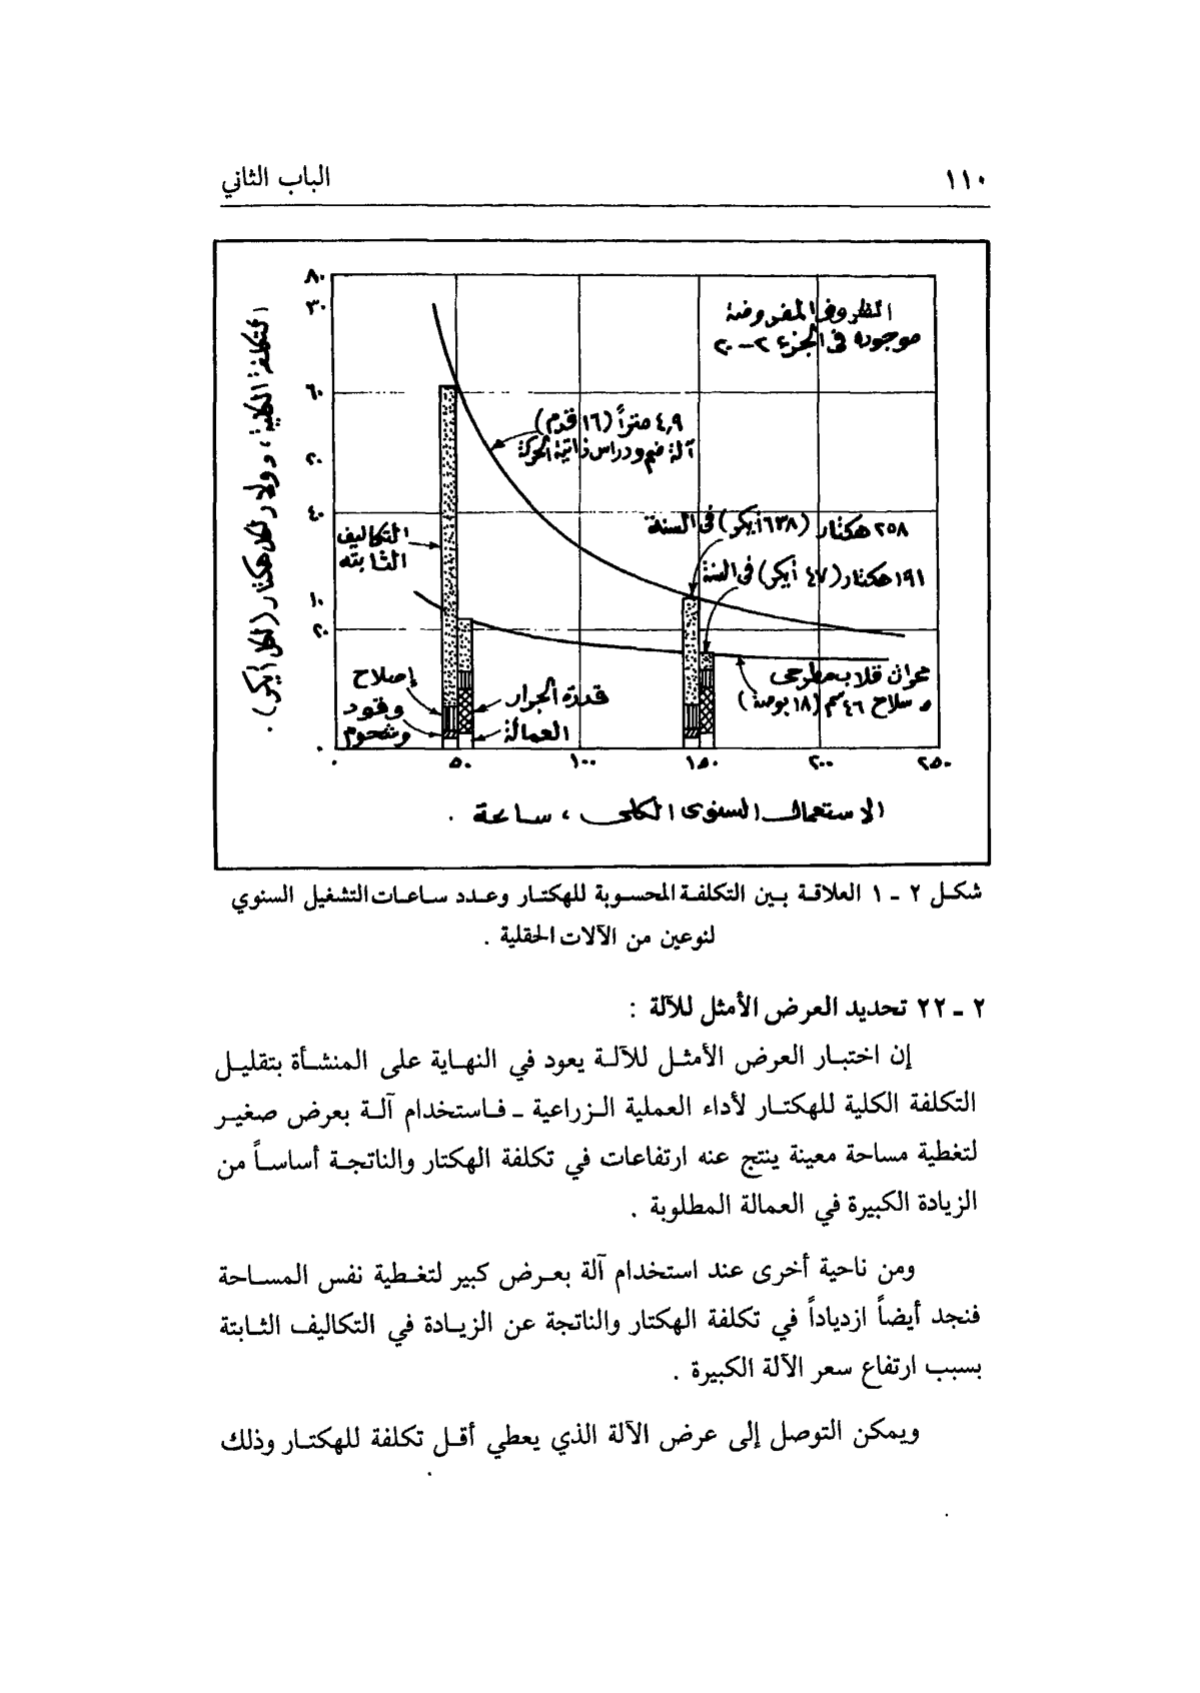 ١١٠ الباب الثاني
الظروف المفروضة
موجودة في الجزء ٢-٢٠
التكلفة الكلية، دولار لكل هكتار (لكل أيكر).
٨٠
٣٠
٦٠
٢٠
٤٠
١٠
٢٠
٠
٤,٩ متراً (١٦ قدم)
آلة ضم ودراس ذاتية الحركة
٢٥٨ هكتار (٦٣٨ أيكر) في السنة
١٩١ هكتار (٤٧ أيكر) في السنة
التكاليف
الثابته
إصلاح
وقود
وشحوم
قدرة الجرار
العمالة
محراث قلاب مطرحي
سلاح ٤٦ سم (١٨ بوصة)
٠ ٥٠ ١٠٠ ١٥٠ ٢٠٠ ٢٥٠
الاستعمال السنوى الكلى، ساعة .
شكل ٢ - ١ العلاقة بين التكلفة المحسوبة للهكتار وعدد ساعات التشغيل السنوي
لنوعين من الآلات الحقلية .
٢ - ٢٢ تحديد العرض الأمثل للآلة :
إن اختبار العرض الأمثل للآلة يعود في النهاية على المنشأة بتقليل
التكلفة الكلية للهكتار لأداء العملية الزراعية - فاستخدام آلة بعرض صغير
لتغطية مساحة معينة ينتج عنه ارتفاعات في تكلفة الهكتار والناتجة أساساً من
الزيادة الكبيرة في العمالة المطلوبة .
ومن ناحية أخرى عند استخدام آلة بعرض كبير لتغطية نفس المساحة
فنجد أيضاً ازدياداً في تكلفة الهكتار والناتجة عن الزيادة في التكاليف الثابتة
بسبب ارتفاع سعر الآلة الكبيرة .
ويمكن التوصل إلى عرض الآلة الذي يعطي أقل تكلفة للهكتار وذلك